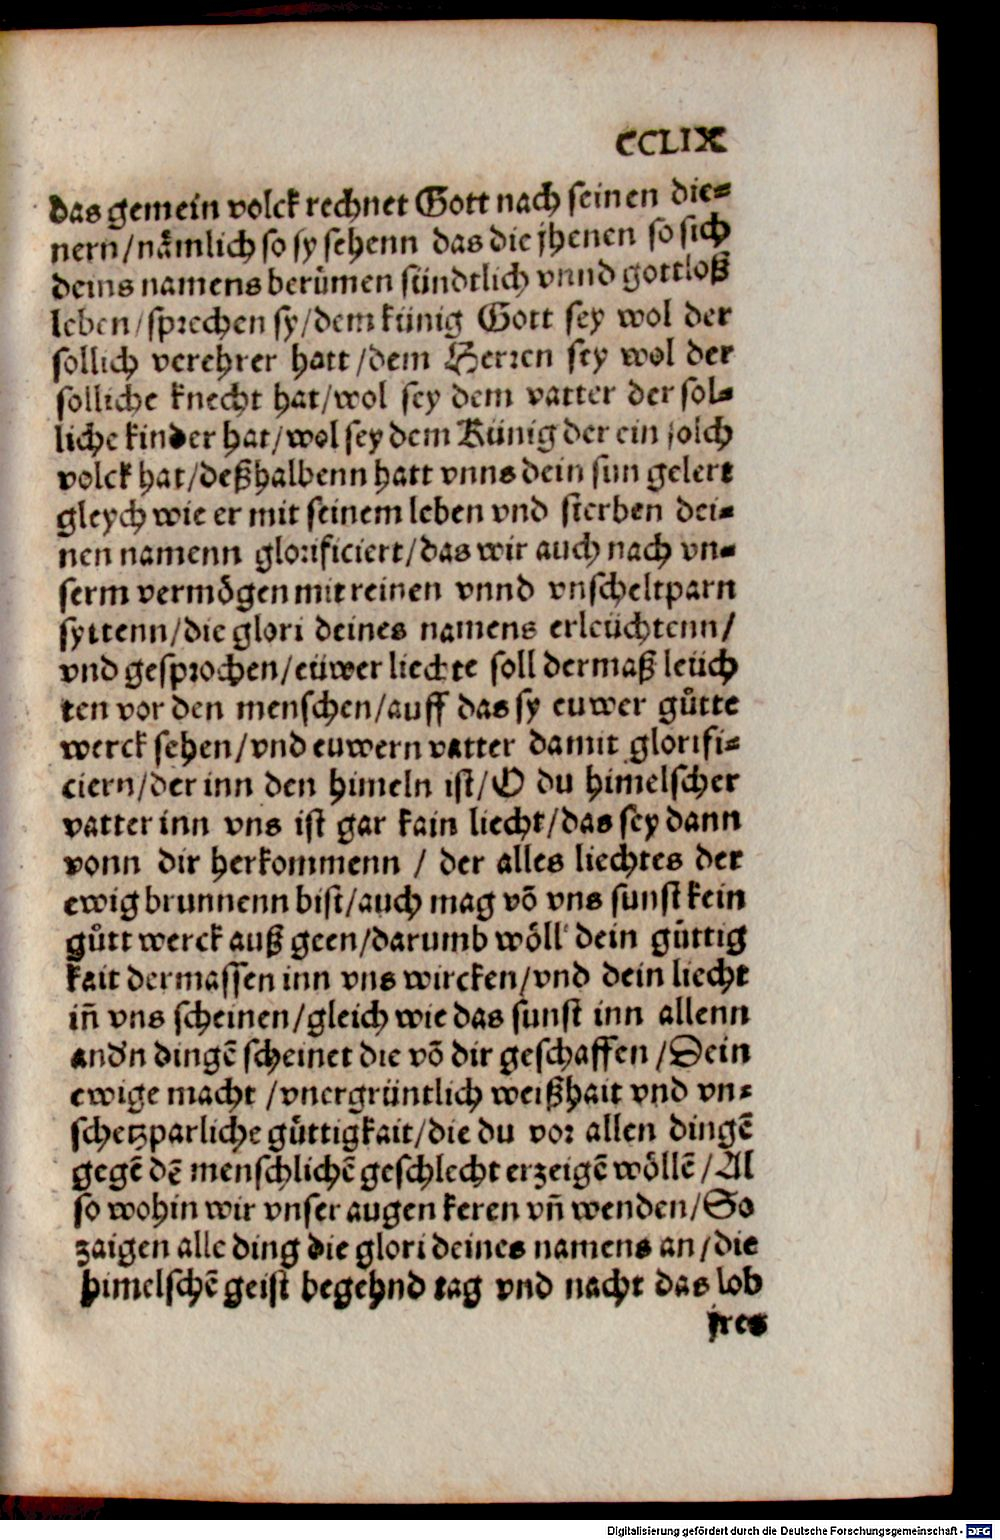 CCLIX
das gemein volck rechnet Gott nach seinen die⸗
nern/nämlich so sy sehenn das die jhenen so sich
deins namens berůmen sündtlich vnnd gottloß
leben/sprechen sy/dem künig Gott sey wol der
sollich verehrer hatt/dem Herren sey wol der
solliche knecht hat/wol sey dem vatter der sol⸗
liche kinder hat/wol sey dem Künig der ein solch
volck hat/deßhalbenn hatt vnns dein sun gelert
gleych wie er mit seinem leben vnd sterben dei⸗
nen namenn glorificiert/das wir auch nach vn⸗
serm vermögen mit reinen vnnd vnscheltparn
syttenn/die glori deines namens erleüchtenn/
vnd gesprochen/eüwer liechte soll dermaß leüch
ten vor den menschen/auff das sy euwer gůtte
werck sehen/vnd euwern vatter damit glorifi⸗
ciern/der inn den himeln ist/O du himelscher
vatter inn vns ist gar kain liecht/das sey dann
vonn dir herkommenn / der alles liechtes der
ewig brunnenn bist/auch mag võ vns sunst kein
gůtt werck auß geen/darumb wöll dein güttig
kait dermassen inn vns wircken/vnd dein liecht
iñ vns scheinen/gleich wie das sunst inn allenn
and'n dingẽ scheinet die võ dir geschaffen /Dein
ewige macht /vnergrüntlich weißhait vnd vn⸗
schetzparliche güttigkait/die du vor allen dingẽ
gegẽ dẽ menschlichẽ geschlecht erzeigẽ wöllẽ /Al
so wohin wir vnser augen keren vñ wenden/So
zaigen alle ding die glori deines namens an/die
himelschẽ geist begehnd tag vnd nacht das lob
jres
Digitalisierung gefördert durch die Deutsche Forschungsgemeinschaft - DFG